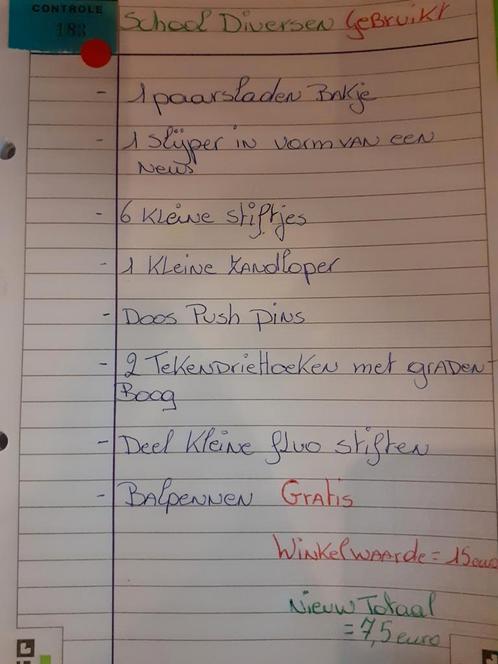 CONTROLE
183
School Diversen Gebruikt
- 1 paarsladen Bakje
- 1 Slijper in vorm van een
Neus
- 6 Kleine stiftjes
- 1 Kleine zandloper
- Doos Push pins
- 2 Tekendriehoeken met graden-
Boog
- Deel Kleine fluo stiften
- Balpennen Gratis
Winkelwaarde = 15 euro
Nieuw Totaal
= 7,5 euro